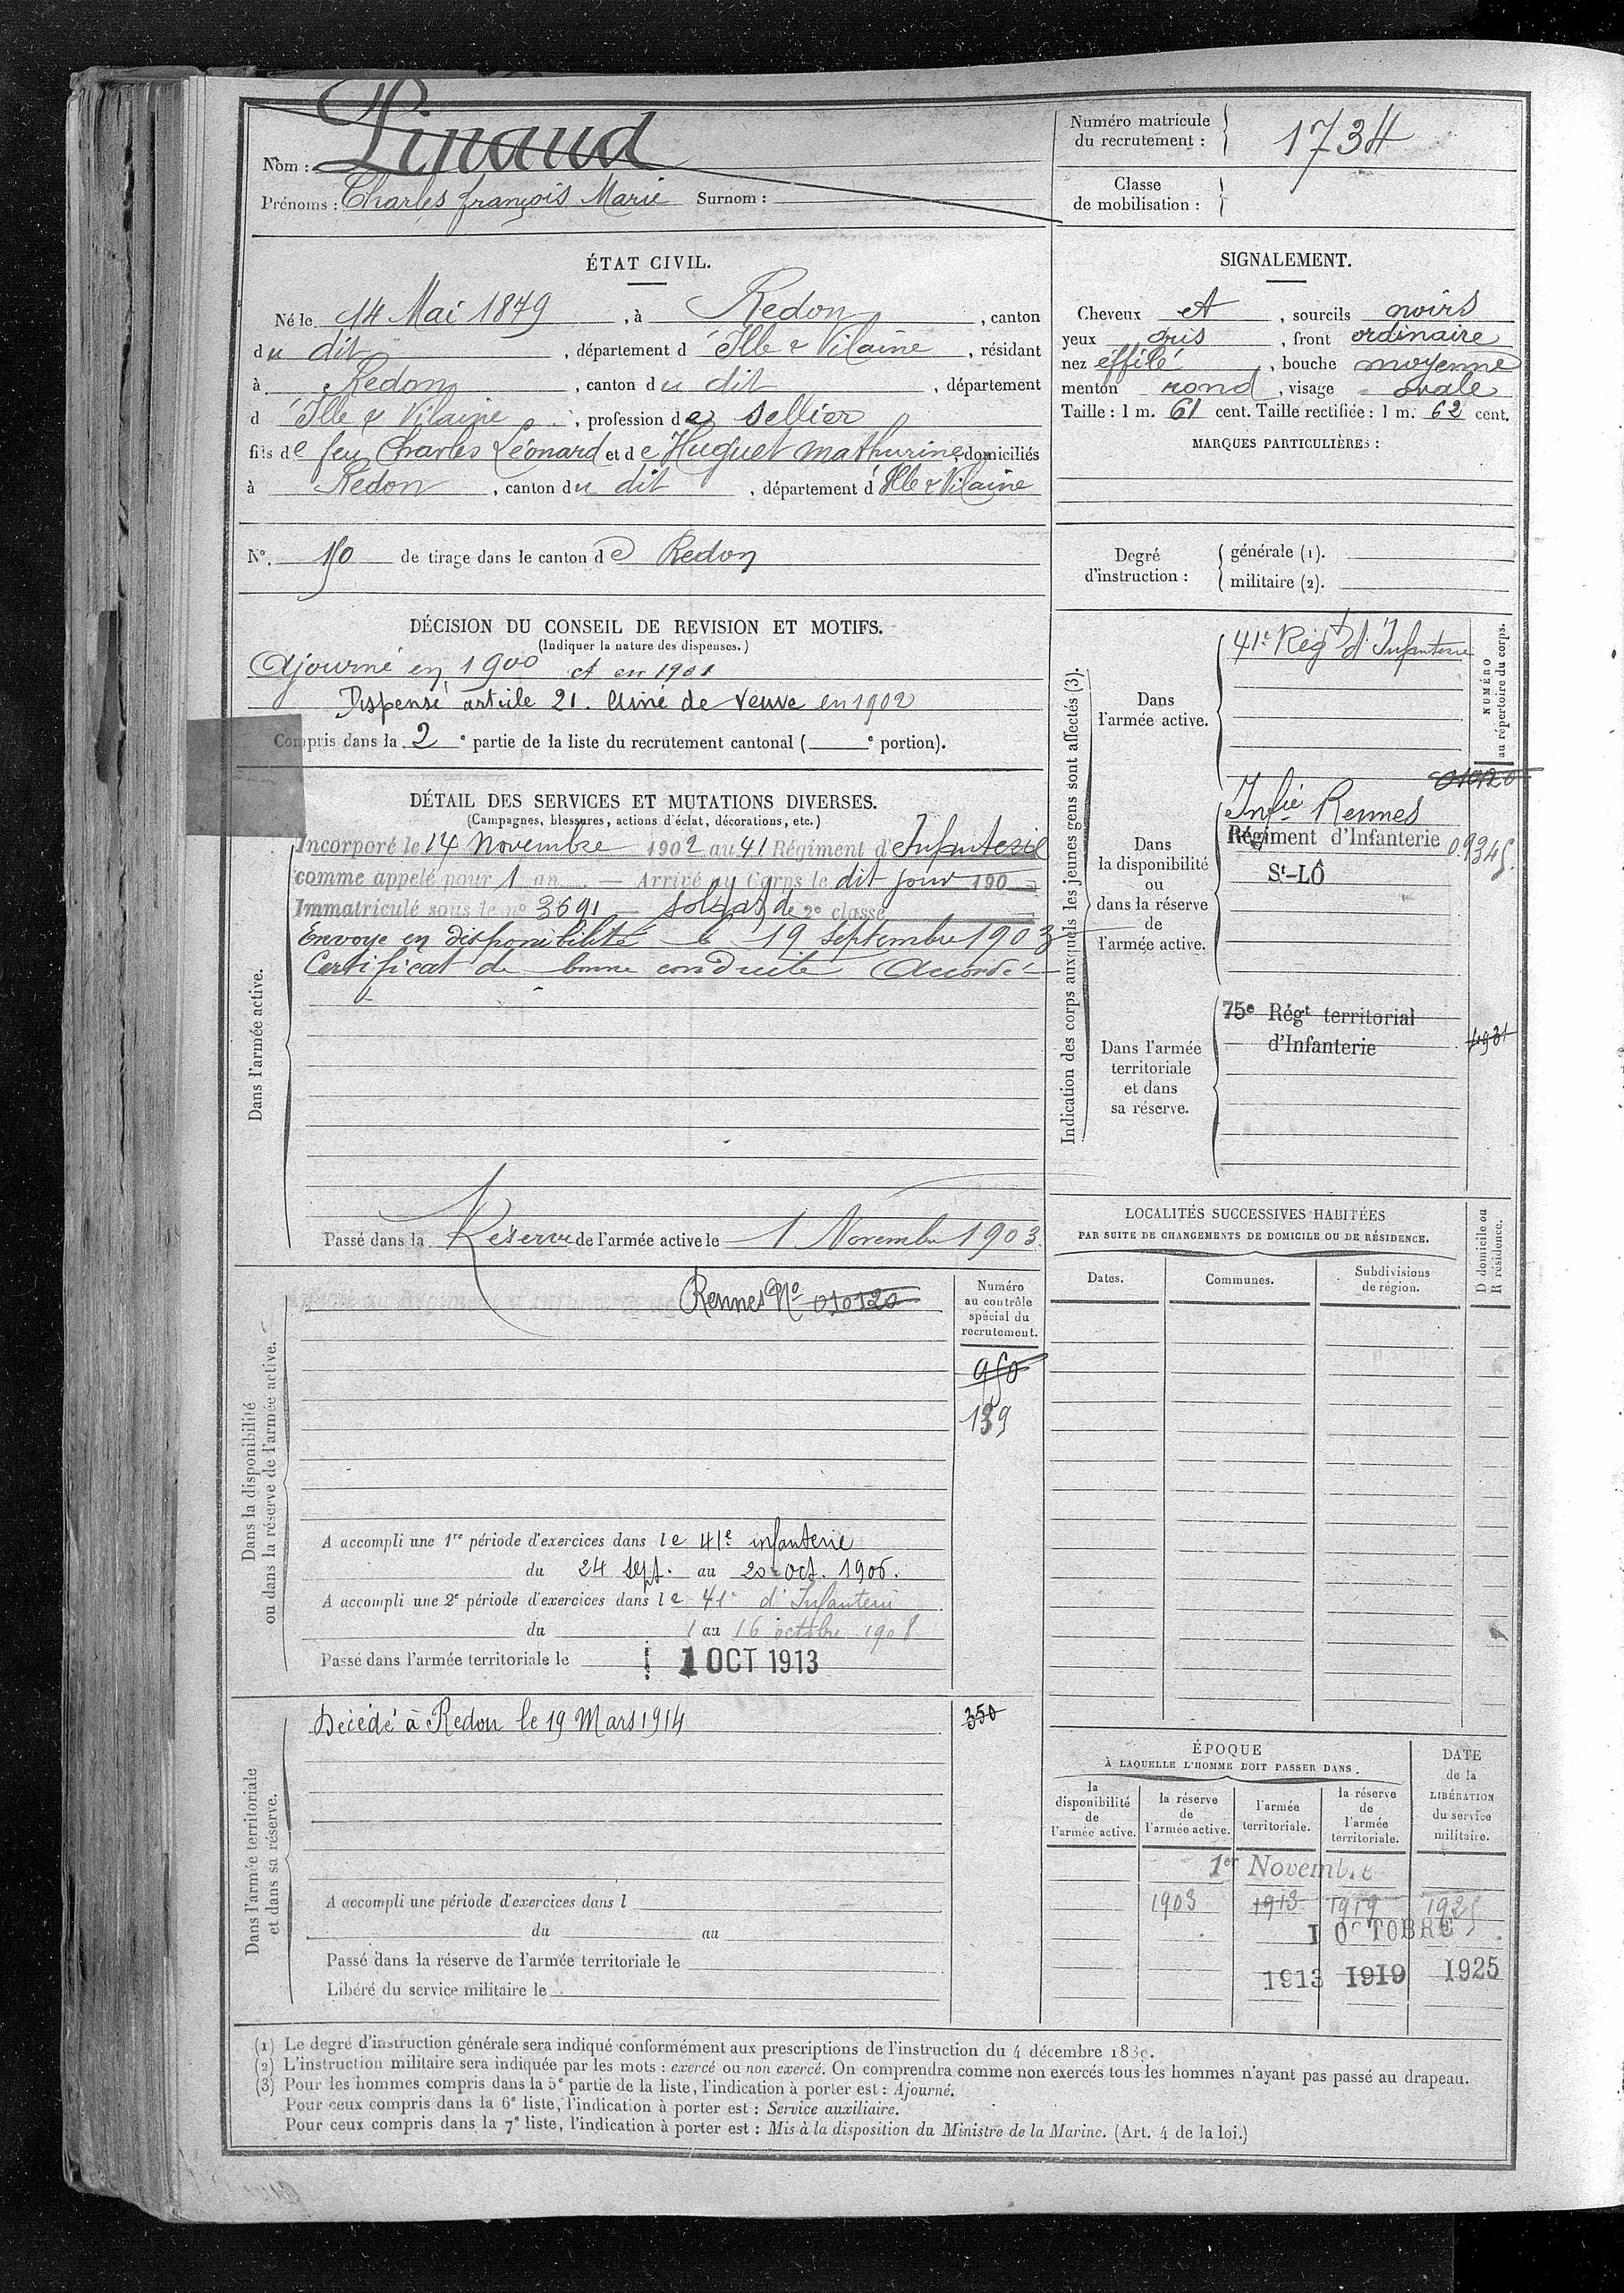 Nom : Pinaud
Prénoms : Charles françois Marie Surnom :
Numéro matricule du recrutement : 1734
Classe de mobilisation :
ÉTAT CIVIL.
Né le 14 Mai 1879, à Redon, canton
du dit, département d'Ille & Vilaine, résidant
à Redon, canton du dit, département
d'Ille & Vilaine, profession de sellier
fils de feu Charles Léonard et de Huguet Mathurine, domiciliés
à Redon, canton du dit, département d'Ille & Vilaine
N°. 150 de tirage dans le canton de Redon
SIGNALEMENT.
Cheveux et, sourcils noirs
yeux gris, front ordinaire
nez effilé, bouche moyenne
menton rond, visage ovale
Taille : 1 m. 61 cent. Taille rectifiée : 1 m. 62 cent.
MARQUES PARTICULIÈRES :
Degré d'instruction : générale (1).
militaire (2).
DÉCISION DU CONSEIL DE REVISION ET MOTIFS.
(Indiquer la nature des dispenses.)
Ajourné en 1900 et en 1901
Dispensé article 21. Ainé de veuve en 1902
Compris dans la 2e partie de la liste du recrutement cantonal (e portion).
DÉTAIL DES SERVICES ET MUTATIONS DIVERSES.
(Campagnes, blessures, actions d'éclat, décorations, etc.)
Dans l'armée active.
Incorporé le 14 Novembre 1902 au 41 Régiment d'Infanterie
comme appelé pour 1 an — Arrivé au Corps le dit jour 190
Immatriculé sous le n° 3691 — soldat de 2e classe
Envoyé en disponibilité le 19 Septembre 1903
Certificat de bonne conduite Accordé
Passé dans la Réserve de l'armée active le 1 Novembre 1903.
Indication des corps auxquels les jeunes gens sont affectés (3).
NUMÉRO au répertoire du corps.
Dans l'armée active.
41e Régt d'Infanterie
010120
Dans la disponibilité ou dans la réserve de l'armée active.
Infie Rennes
Régiment d'Infanterie 09345.
St-LÔ
Dans l'armée territoriale et dans sa réserve.
75e Régt territorial
d'Infanterie
4931
Dans la disponibilité ou dans la réserve de l'armée active.
Rennes No 010120
Numéro au contrôle spécial du recrutement.
950
139
A accompli une 1re période d'exercices dans le 41e infanterie
du 24 sept. au 20 oct. 1906.
A accompli une 2e période d'exercices dans le 41e d'Infanterie
du 1 au 16 octobre 1908
Passé dans l'armée territoriale le 1 OCT 1913
LOCALITÉS SUCCESSIVES HABITÉES
PAR SUITE DE CHANGEMENTS DE DOMICILE OU DE RÉSIDENCE.
Dates.
Communes.
Subdivisions de région.
D domicile ou R résidence.
Dans l'armée territoriale et dans sa réserve.
Décédé à Redon le 19 Mars 1914
350
A accompli une période d'exercices dans l
du au
Passé dans la réserve de l'armée territoriale le
Libéré du service militaire le
ÉPOQUE
À LAQUELLE L'HOMME DOIT PASSER DANS.
la disponibilité de l'armée active.
la réserve de l'armée active.
l'armée territoriale.
la réserve de l'armée territoriale.
DATE de la LIBÉRATION du service militaire.
1er Novembre
1903 1913 1919 1925
1 OCTOBRE
1913 1919 1925
(1) Le degré d'instruction générale sera indiqué conformément aux prescriptions de l'instruction du 4 décembre 1889.
(2) L'instruction militaire sera indiquée par les mots : exercé ou non exercé. On comprendra comme non exercés tous les hommes n'ayant pas passé au drapeau.
(3) Pour les hommes compris dans la 5e partie de la liste, l'indication à porter est : Ajourné.
Pour ceux compris dans la 6e liste, l'indication à porter est : Service auxiliaire.
Pour ceux compris dans la 7e liste, l'indication à porter est : Mis à la disposition du Ministre de la Marine. (Art. 4 de la loi.)